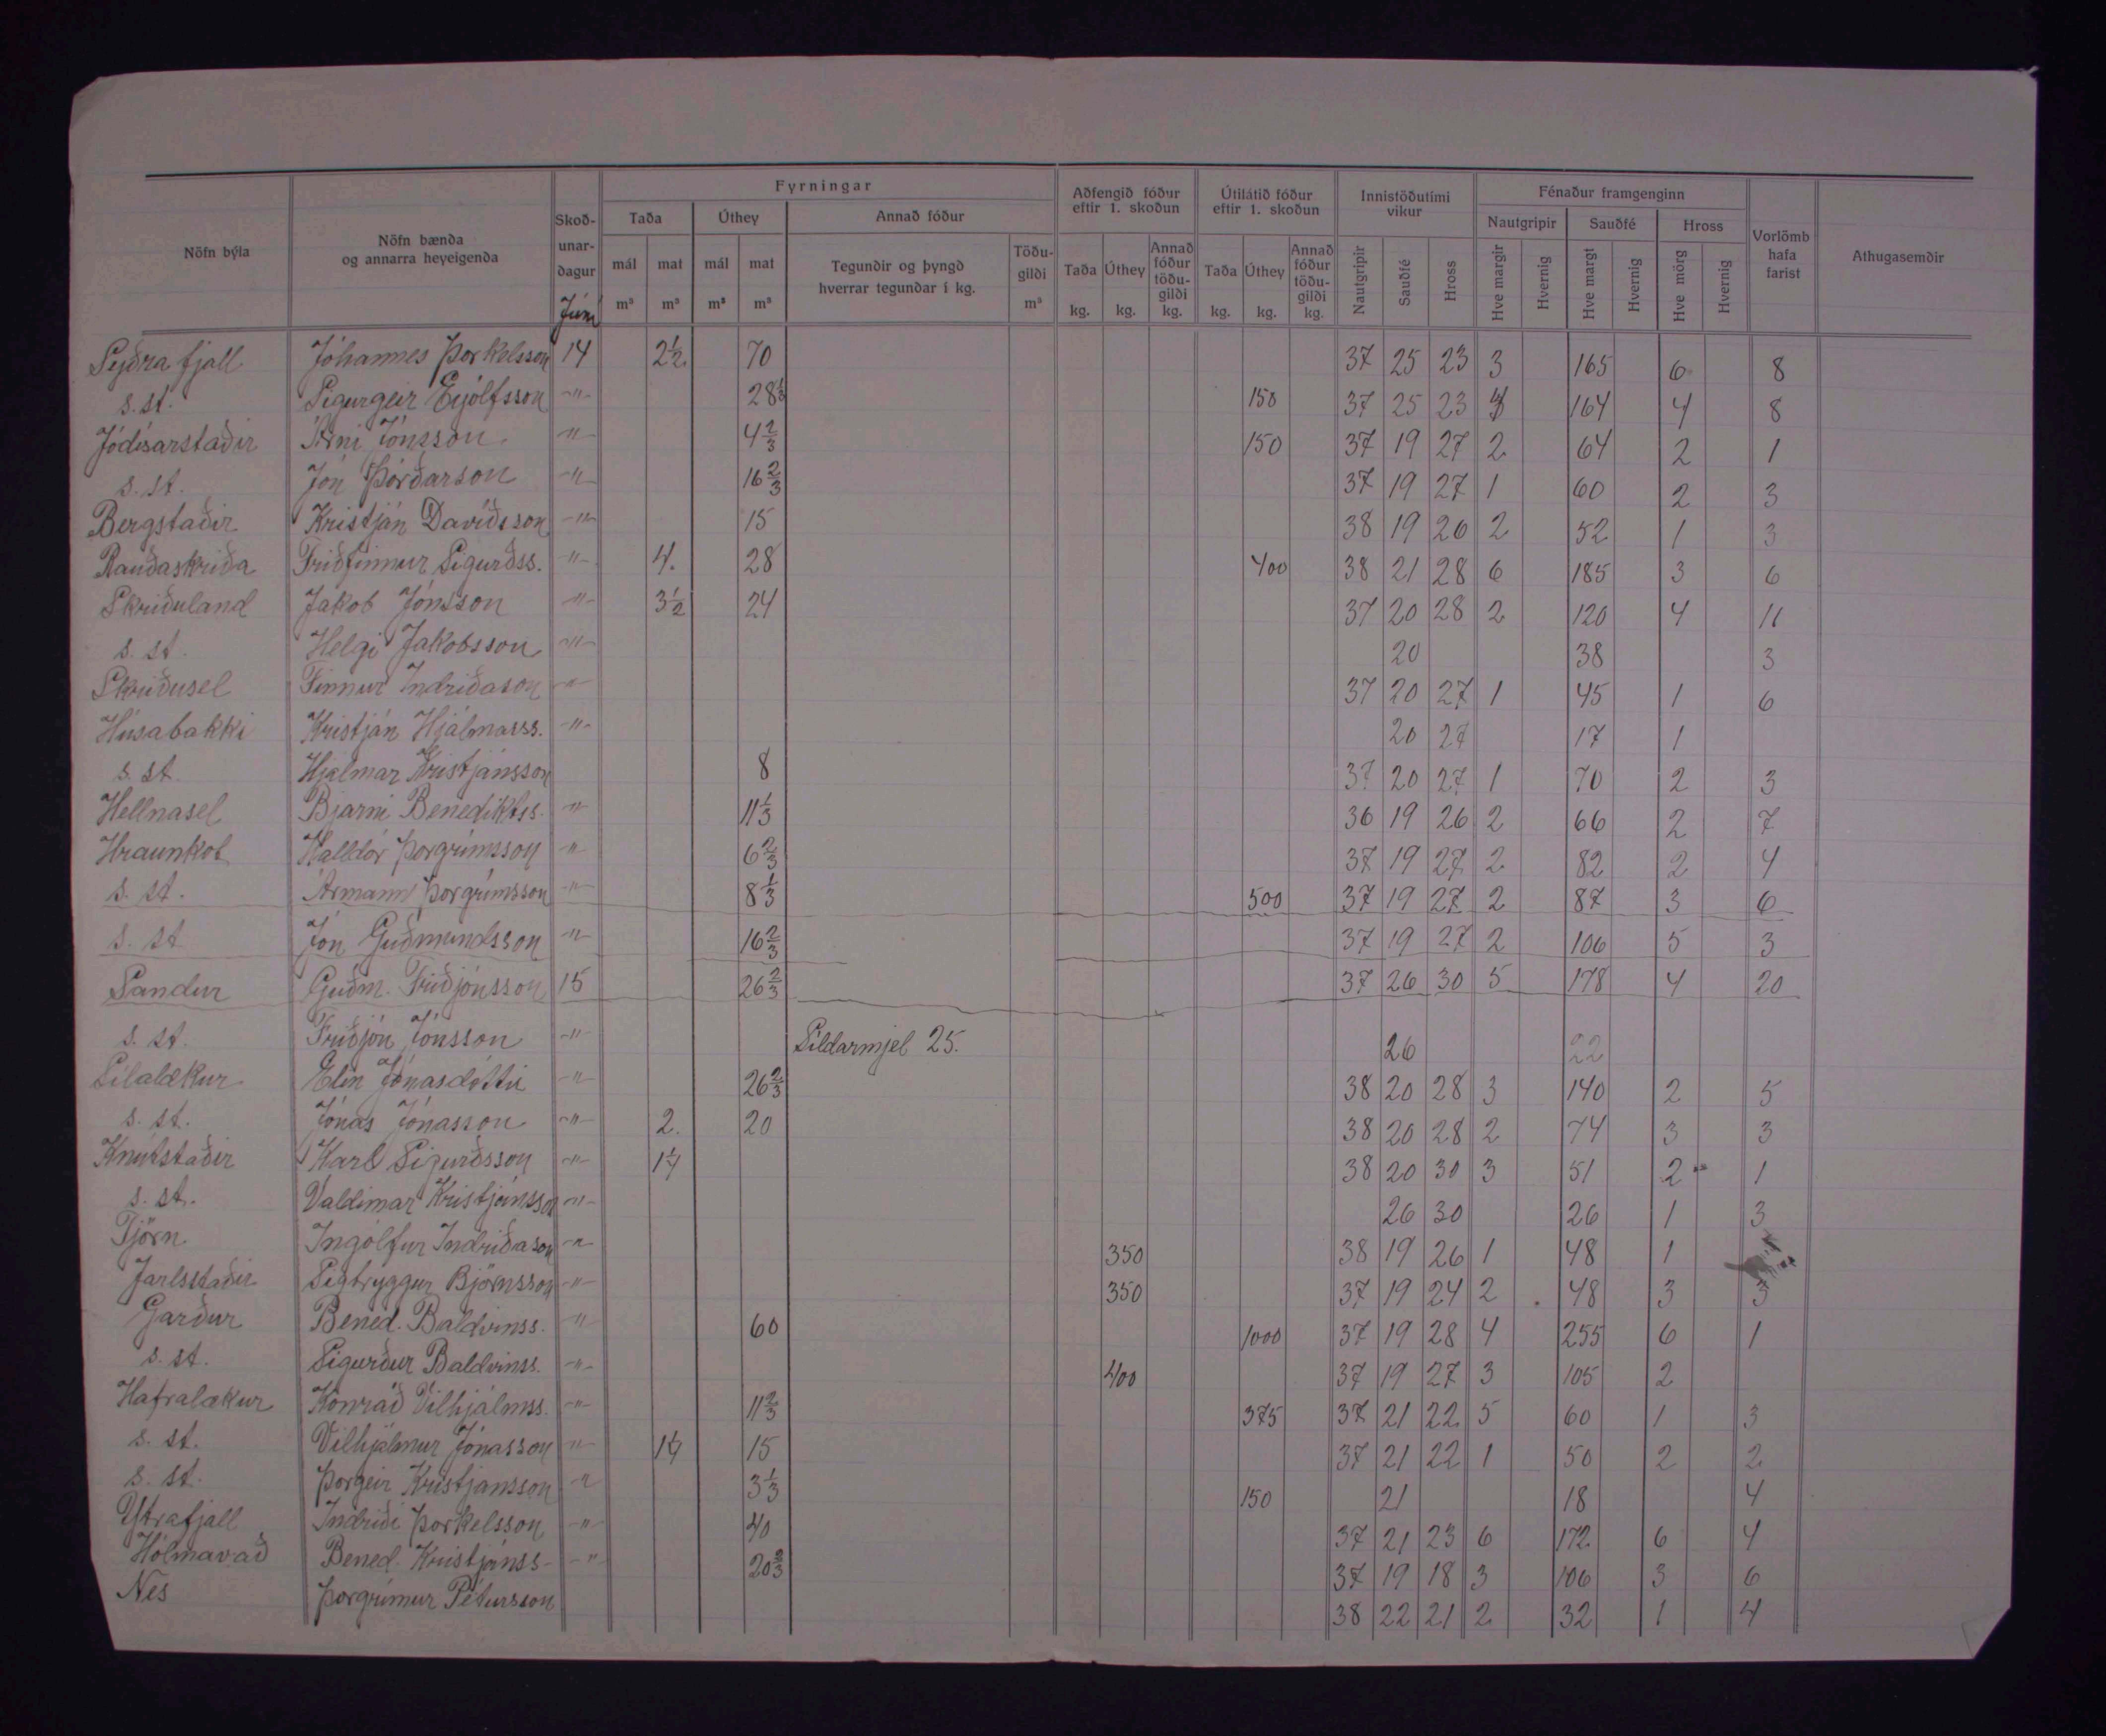 Fyrningar
Aðfengið fóður eftir 1. skoðun
Útilátið fóður eftir 1. skoðun
Innistöðutími vikur
Fénaður framgenginn
Nöfn býla
Nöfn bænda og annarra heyeigenda
Skoð-unar-dagur
Júní
Taða
Úthey
Annað fóður
Nautgripir
Sauðfé
Hross
Vorlömb hafa farist
Athugasemdir
mál m³
mat m³
mál m³
mat m³
Tegundir og þyngd hverrar tegundar í kg.
Töðu-gildi m³
Taða kg.
Úthey kg.
Annað fóður töðu-gildi kg.
Taða kg.
Úthey kg.
Annað fóður töðu-gildi kg.
Nautgripir
Sauðfé
Hross
Hve margir
Hvernig
Hve margt
Hvernig
Hve mörg
Hvernig
Sýðra fjall Jóhannes Þorkelsson 14 2½ 70 37 25 23 3 165 6 8
s. st. Sigurgeir Eyjólfsson -"- 28⅓ 150 37 25 23 164 4 8
Jódísarstaðir Árni Jónsson -"- 4⅔ 150 37 19 27 2 64 2 1
s. st. Jón Þórðarson -"- 16⅔ 37 19 27 1 60 2 3
Bergstaðir Kristján Davíðsson -"- 15 38 19 26 2 52 1 3
Rauðaskriða Friðfinnur Sigurðss. -"- 4. 28 400 38 21 28 6 185 3 6
Skriðuland Jakob Jónsson -"- 3½ 24 37 20 28 2 120 4 11
s. st. Helgi Jakobsson -"- 20 38 3
Skriðusel Finnur Indriðason -"- 37 20 27 1 45 1 6
Húsabakki Kristján Hjálmarss. -"- 20 27 17 1
s. st. Hjálmar Kristjánsson 8 37 20 27 1 70 2 3
Hellnasel Bjarni Benediktss. -"- 11⅓ 36 19 26 2 66 2 7
Hraunkot Halldór Þorgrímsson -"- 6⅔ 37 19 27 2 82 2 4
s. st. Ármann Þorgrímsson -"- 8⅓ 500 37 19 27 2 87 3 6
s. st. Jón Guðmundsson -"- 16⅔ 37 19 27 2 106 5 3
Sandur Guðm. Friðjónsson 15 26⅔ 37 26 30 5 178 4 20
s. st. Friðjón Jónsson -"- Síldarmjel 25. 26 22
Sílalækur Elín Jónasdóttir -"- 26⅔ 38 20 28 3 140 2 5
s. st. Jónas Jónasson -"- 2. 20 38 20 28 2 74 3 3
Knútstaðir Karl Sigurðsson -"- 1¼ 38 20 30 3 51 2 1
s. st. Valdimar Kristjánsson -"- 26 30 26 1 3
Tjörn Ingólfur Indriðason -"- 350 38 19 26 1 48 1
Jarlsstaðir Sigtryggur Björnsson -"- 350 37 19 24 2 48 3 3
Garður Bened. Baldvinss. -"- 60 1000 37 19 28 4 255 6 1
s. st. Sigurður Baldvinss. -"- 400 37 19 27 3 105 2
Hafralækur Konráð Vilhjálmss. -"- 11⅔ 375 37 21 22 5 60 1 3
s. st. Vilhjálmur Jónasson -"- 1¼ 15 37 21 22 1 50 2 2
s. st. Þorgeir Kristjánsson -"- 3⅓ 150 21 18 4
Ytrafjall Indriði Þorkelsson -"- 40 37 21 23 6 172 6 4
Hólmavað Bened. Kristjánss- -"- 37 19 18 3 106 3 6
Nes Þorgrímur Pétursson 38 22 21 2 32 1 4